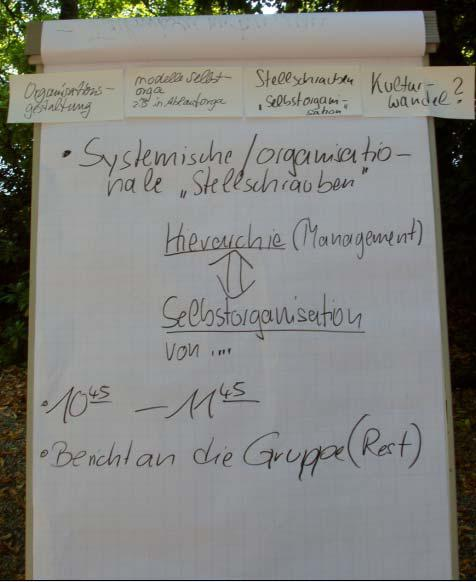 Organisations-
gestaltung
modelle Selbst-
orga
z.B. in Ablauforga
Stellschrauben
„Selbstorgani-
sation"
Kultur-
wandel?
• Systemische/organisatio-
nale „Stellschrauben"
Hierarchie (Management)
Selbstorganisation
von ....
• 10 45 – 11 45
• Bericht an die Gruppe (Rest)